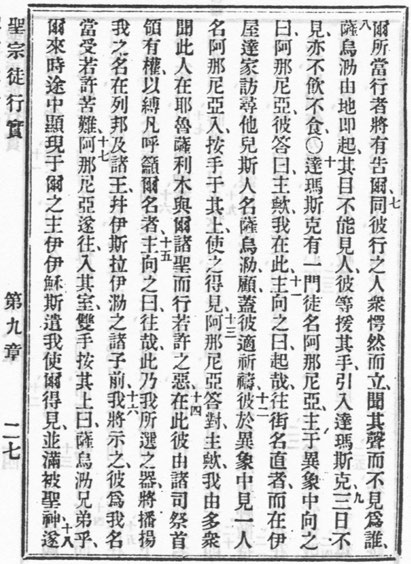 爾所當行者將有告爾七同彼行之人衆愕然而立、聞其聲而不見爲誰、
八薩烏泐由地卽起、其目不能見人、彼等援其手、引入達瑪斯克、九三日不
見、亦不飲不食〇十達瑪斯克有一門徒、名阿那尼亞、主于異象中向之
曰、阿那尼亞、彼答曰、主歟、我在此、十一主向之曰、起哉、往街名直者、而在伊
屋達家、訪尋他兒斯人、名薩烏泐顧、蓋彼適祈禱、十二彼於異象中見一人
名阿那尼亞、入按手于其上、使之得見、十三阿那尼亞答對、主歟、我由多衆
聞此人在耶魯薩利木與爾諸聖而行若許之惡、十四在此彼由諸司祭首
領有權以縛凡呼籲爾名者、十五主向之曰、往哉、此乃我所選之器、將播揚
我之名在列邦及諸王、幷伊斯拉伊泐之諸子前、十六我將示之、彼爲我名
當受若許苦難、十七阿那尼亞遂往入其室、雙手按其上曰、薩烏泐兄弟乎、
爾來時、途中顯現于爾之主伊伊穌斯遣我、使爾得見、並滿被聖神、十八遂
聖宗徒行實 第九章 二七